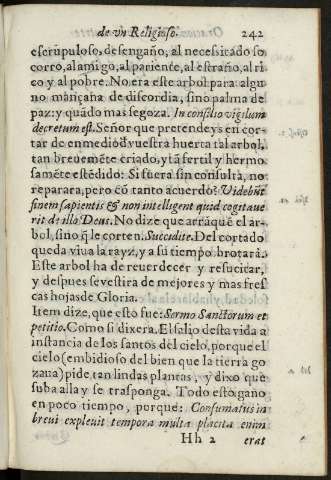 de vn Religioso. 242
escrupuloso, desengaño, al necessitado so
corro, al amigo, al pariente, al estraño, al ri
co y al pobre. No era este arbol para algu
no mançana de discordia, sino palma de
paz: y quãdo mas segoza. In consilio vigilum
decretum est. Señor que pretendeys en cor-
tar de en medio d̃ vuestra huerta tal arbol,
tan breuemẽte criado, y tã fertil y hermo-
samẽte estẽdido: Si fuera sin consulta, no
reparara, pero cõ tanto acuerdo? Videbũt
finem sapientis & non intelligent quid cogitaue
rit de illo Deus. No dize que arrãquẽ el ar-
bol, sino q̃ le corten. Succidite. Del cortado
queda viua la rayz, y a su tiempo brotarà.
Este arbol ha de reuerdecer y resucitar,
y despues se vestira de mejores y mas fres
cas hojas de Gloria.
Item dize, que esto fue: Sermo Sanctorum et
petitio. Como si dixera. El salio desta vida a
instancia de los santos del cielo, porque el
cielo (embidioso del bien que la tierra go
zaua) pide tan lindas plantas, y dixo que
suba alla y se trasponga. Todo esto gano
en poco tiempo, porque: Consumatus in
breui expleuit tempora multa placita enim
Hh 2 erat